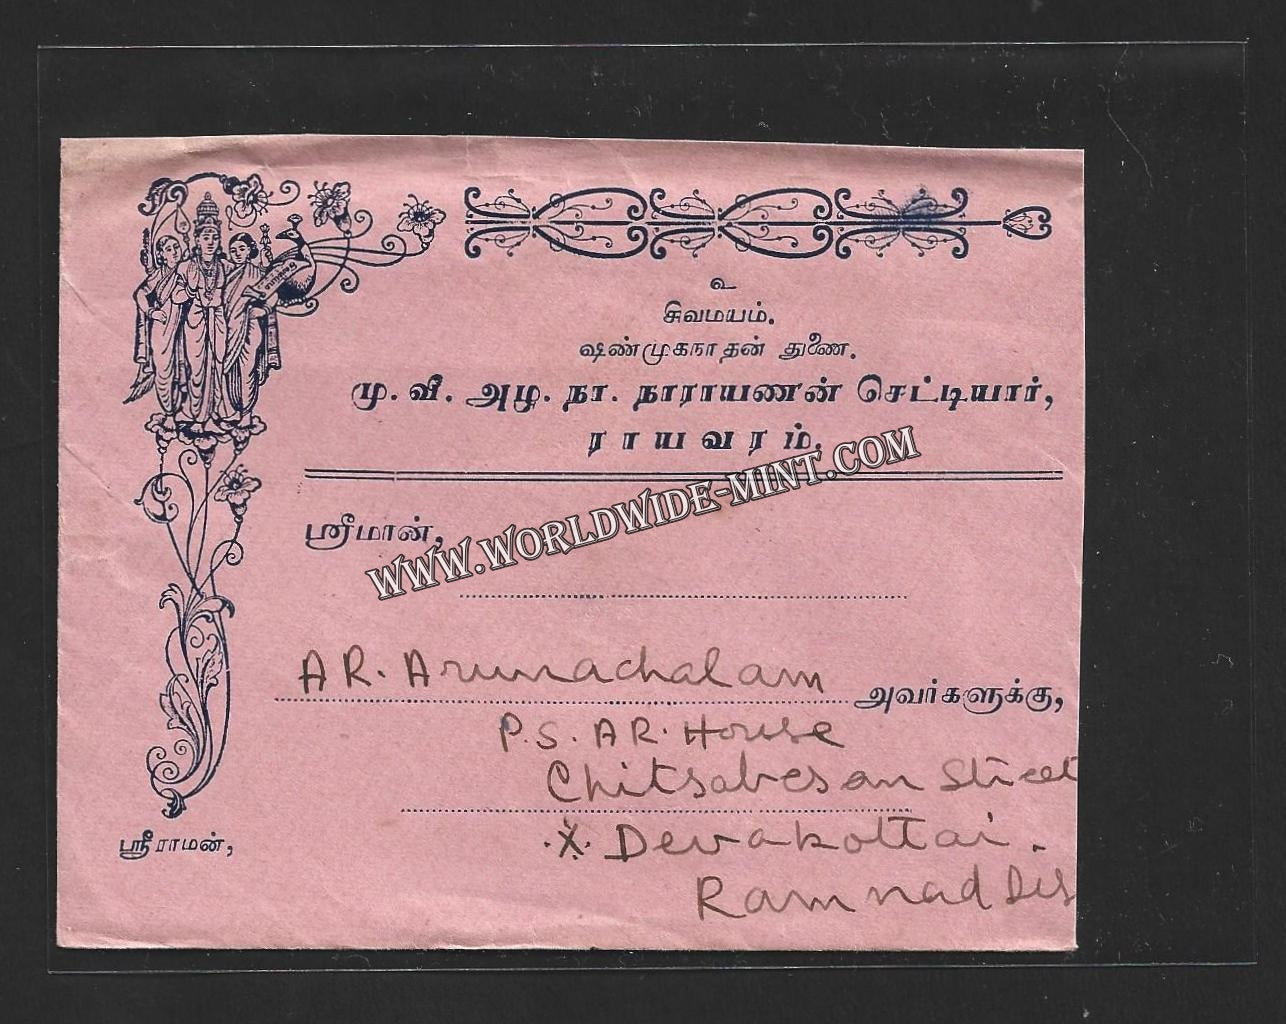 உ
சிவமயம்.
ஷண்முகநாதன் துணை.
மு. வீ. அழ. நா. நாராயணன் செட்டியார்,
ராயவரம்.
WWW.WORLDWIDE-MINT.COM
ஸ்ரீமான்,
AR. Arunachalam அவர்களுக்கு,
P.S. AR. House
Chitsabesan Street
.X. Devakottai.
Ramnad Dis
ஸ்ரீராமன்,